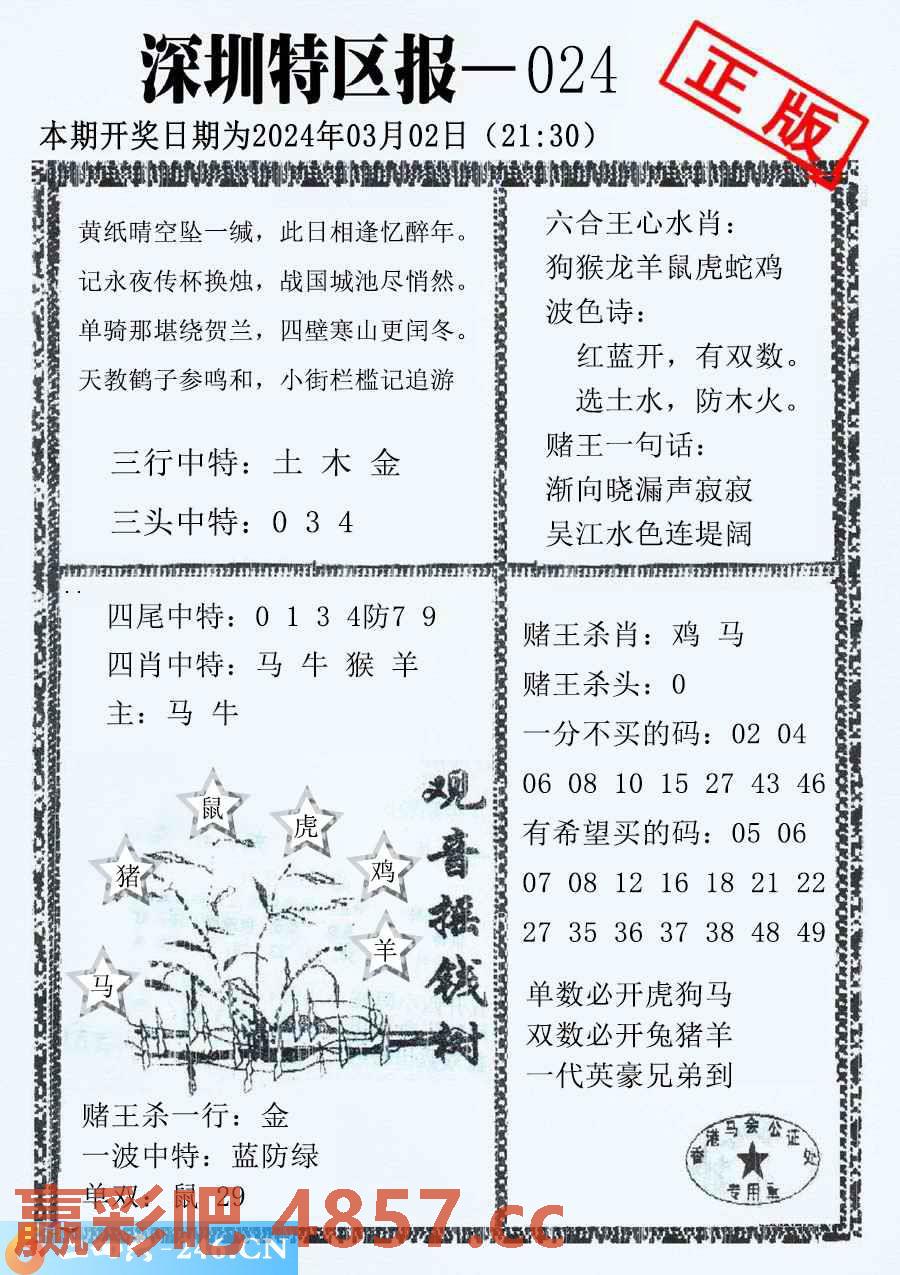 深圳特区报－024
正版
本期开奖日期为2024年03月02日（21:30）
黄纸晴空坠一缄，此日相逢忆醉年。
记永夜传杯换烛，战国城池尽悄然。
单骑那堪绕贺兰，四壁寒山更闰冬。
天教鹤子参鸣和，小街栏槛记追游
三行中特：土 木 金
三头中特：0 3 4
六合王心水肖：
狗猴龙羊鼠虎蛇鸡
波色诗：
红蓝开，有双数。
选土水，防木火。
赌王一句话：
渐向晓漏声寂寂
吴江水色连堤阔
四尾中特：0 1 3 4防7 9
四肖中特：马 牛 猴 羊
主：马 牛
鼠
虎
猪
鸡
羊
马
观音摇钱树
赌王杀一行：金
一波中特：蓝防绿
单双：鼠 29
赌王杀肖：鸡 马
赌王杀头：0
一分不买的码：02 04
06 08 10 15 27 43 46
有希望买的码：05 06
07 08 12 16 18 21 22
27 35 36 37 38 48 49
单数必开虎狗马
双数必开兔猪羊
一代英豪兄弟到
香港马会公证处
专用章
赢彩吧 4857.cc